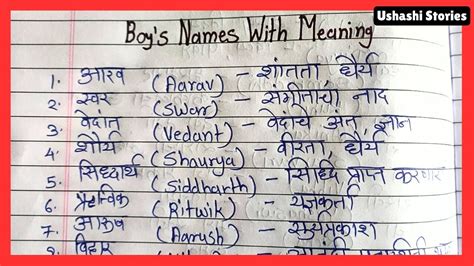 Ushashi Stories
Boy's Names With Meaning
1. आरव (Aarav) - शांतता, धैर्य
2. स्वर (Swar) - संगीताचा नाद
3. वेदांत (Vedant) - वेदांचे अंत, ज्ञान
4. शौर्य (Shaurya) - वीरता, धैर्य
5. सिद्धार्थ (Siddharth) - सिद्धि प्राप्त करणार
6. (Ritwik) - यज्ञकर्ता
7. आरुष (Aarush) - सूर्यप्रकाश
8. विहार